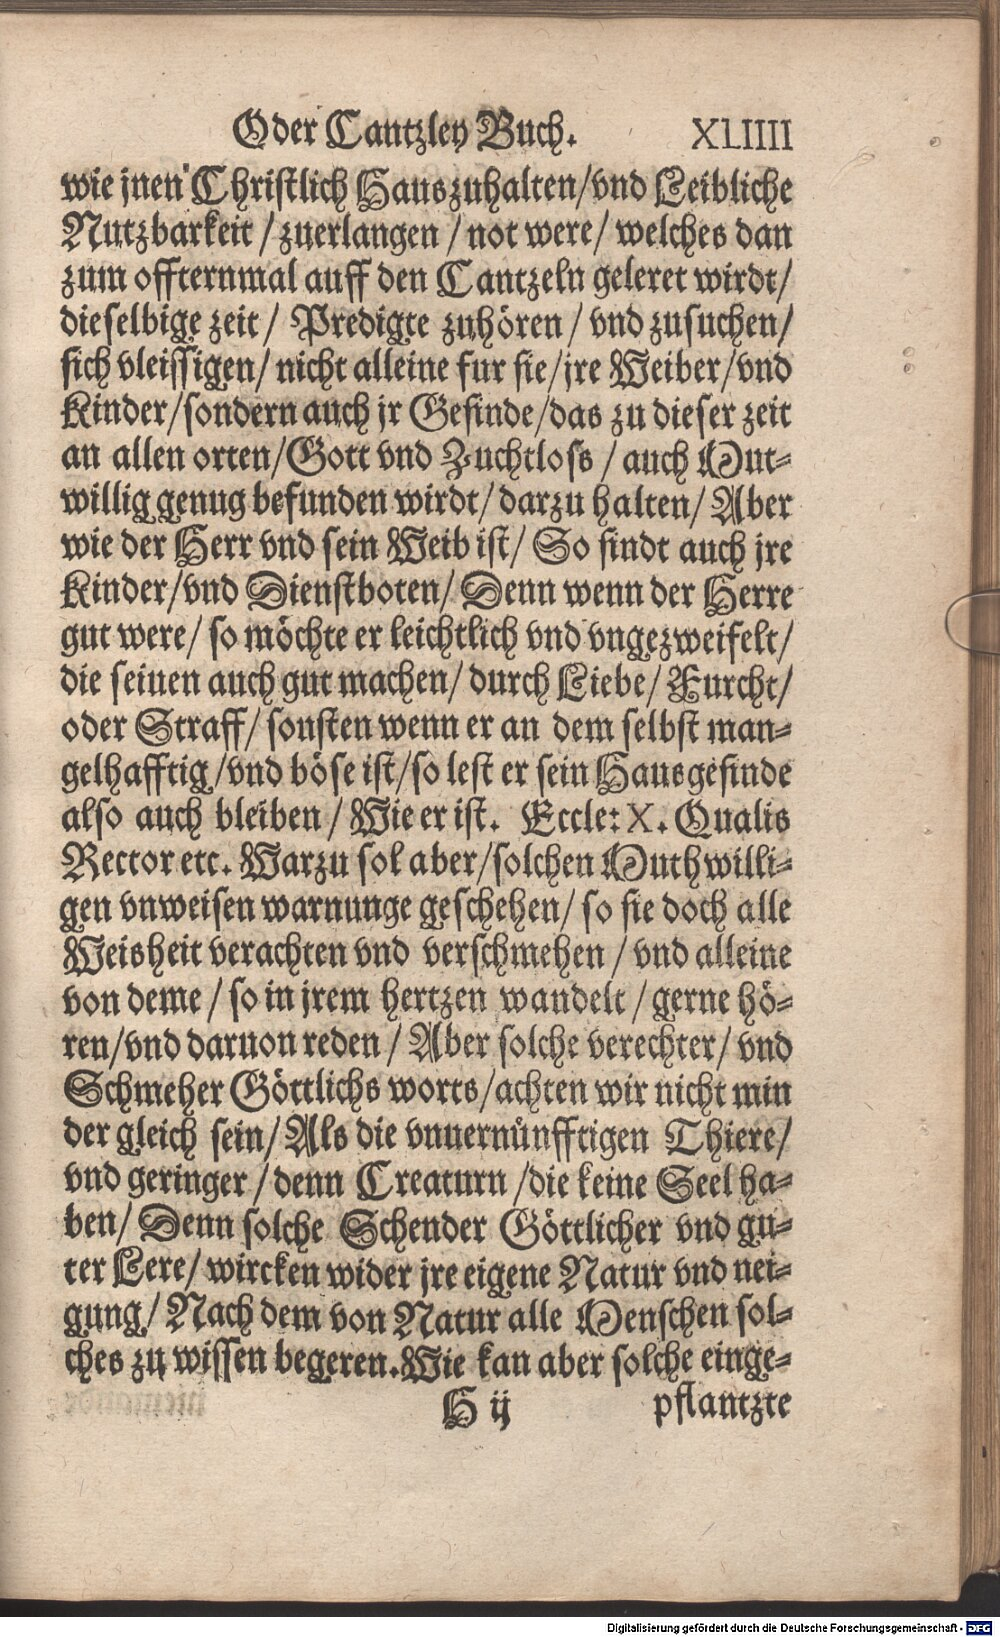 Oder Cantzley Buch. XLIIII
wie jnen Christlich Hauszuhalten/vnd Leibliche
Nutzbarkeit / zuerlangen / not were/ welches dan
zum offternmal auff den Cantzeln geleret wirdt/
dieselbige zeit/ Predigte zuhören/ vnd zusuchen/
sich vleissigen/ nicht alleine fur sie/jre Weiber/vnd
Kinder/sondern auch jr Gesinde/das zu dieser zeit
an allen orten/Gott vnd Zuchtloss / auch Mut-
willig genug befunden wirdt/darzu halten/ Aber
wie der Herr vnd sein Weib ist/ So sindt auch jre
Kinder/vnd Dienstboten/ Denn wenn der Herre
gut were/ so möchte er leichtlich vnd vngezweifelt/
die seinen auch gut machen/ durch Liebe/ Furcht/
oder Straff/ sonsten wenn er an dem selbst man-
gelhafftig/vnd böse ist/so lest er sein Hausgesinde
also auch bleiben/ Wie er ist. Eccle: X. Qualis
Rector etc. Warzu sol aber/solchen Muthwilli-
gen vnweisen warnunge geschehen/ so sie doch alle
Weisheit verachten vnd verschmehen / vnd alleine
von deme / so in jrem hertzen wandelt / gerne hö-
ren/vnd daruon reden / Aber solche verechter/ vnd
Schmeher Göttlichs worts/achten wir nicht min
der gleich sein/ Als die vnuernünfftigen Thiere/
vnd geringer / denn Creaturn /die keine Seel ha-
ben/ Denn solche Schender Göttlicher vnd gu-
ter Lere/ wircken wider jre eigene Natur vnd nei-
gung/ Nach dem von Natur alle Menschen sol-
ches zu wissen begeren. Wie kan aber solche einge-
H ij pflantzte
Digitalisierung gefördert durch die Deutsche Forschungsgemeinschaft - DFG